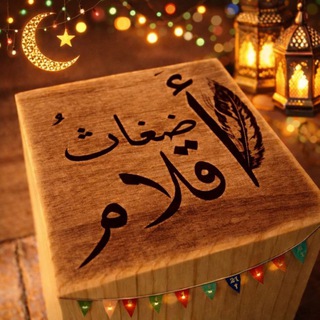 أضغاثُ
أقلام